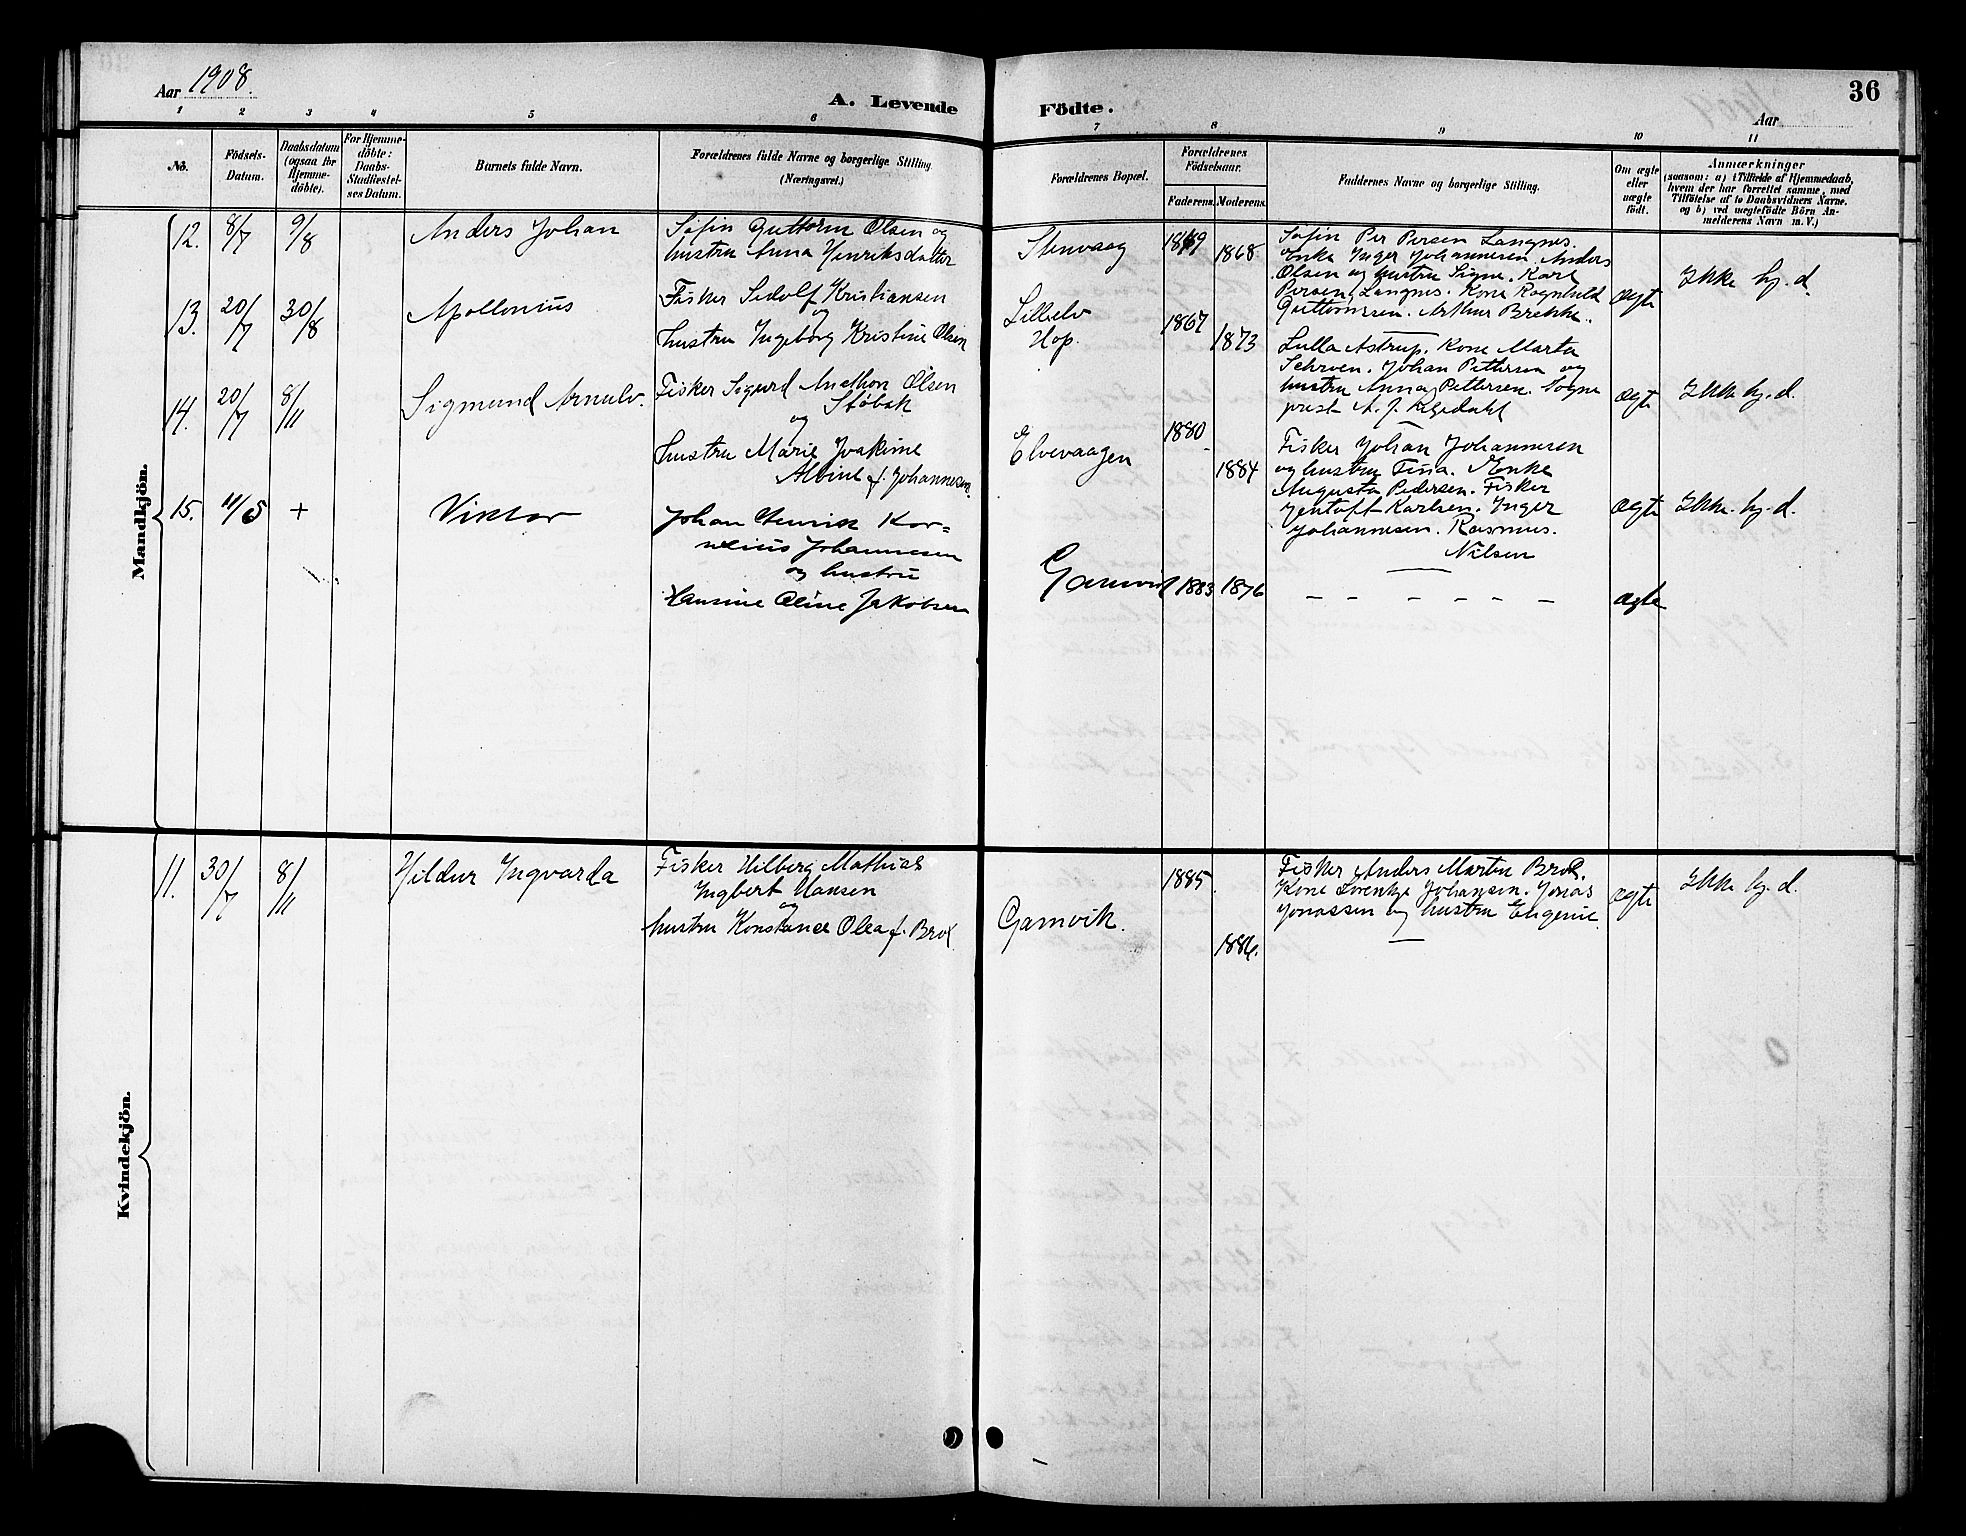 Aar 1908.
A. Levende
Födte.
36
Aar
1 2 3 4 5 6 7 8 9 10 11
No.
Födsels-Datum.
Daabsdatum (ogsaa for Hjemme-döbte).
For Hjemme-döbte: Daabs-Stadfæstel-ses Datum.
Barnets fulde Navn.
Forældrenes fulde Navne og borgerlige Stilling (Næringsvei.)
Forældrenes Bopæl.
Forældrenes Födselsaar.
Faderens. Moderens.
Faddernes Navne og borgerlige Stilling.
Om ægte eller uægte födt.
Anmærkninger
(saasom: a) i Tilfælde af Hjemmedaab,
hvem der har forrettet samme, med
Tilföielse af to Daabsvidners Navne.
og b) ved uægtefödte Börn An-
melderens Navn m. V.)
Mandkjön.
12. 8/7 9/8 Anders Johan
Søfin Guttorm Olsen og
hustru Anna Henriksdatter
Stenvaag 1869 1868
Søfin Per Persen Langnes.
Enke Inger Johannesen. Anders
Olsen og hustru Signe. Karl
Persen, Langnes. Kone Ragnhild
Guttormsen. Arthur Brekke.
ægte Ikke hj. d.
13. 20/7 30/8 Apollonius
Fisker Sedolf Kristiansen
og
hustru Ingeborg Kristine Olsen
Lillelv
Hop. 1867 1873
Lulla Astrup. Kone Marta
Schrøen. Johan Pettersen og
hustru Anna Pettersen. Sogne
prest A. J.
ægte Ikke hj. d.
14. 20/7 8/11 Sigmund Arnulv.
Fisker Sigurd Anathon Olsen
Støbak
og
hustru Marie Joakime
Albine f. Johannesen
Elvevaagen 1880 1884
Fisker Johan Johannesen
og hustru Tina. Enke
Augusta Pedersen. Fisker
Gentoft Karlsen. Inger
Johannesen. Rasmus.
Nilsen
ægte Ikke hj. d.
15. 11/5 + Viktor
Johan Henrik Kor-
nelius Johannesen
og hustru
Hansine Oline Jakobsen
Gamvik 1883 1876
– – – – – –
ægte
Kvindekjön.
11. 30/7 8/11 Hildur Ingvarda
Fisker Hilberg Mathias
Ingbert Hansen
og
hustru Konstance Olea f. Brox
Gamvik. 1885 1886.
Fisker Anders Martin Brox.
Kone Lorentze Johansen. Jonas
Jonassen og hustru Eugenie
ægte Ikke hj. d.